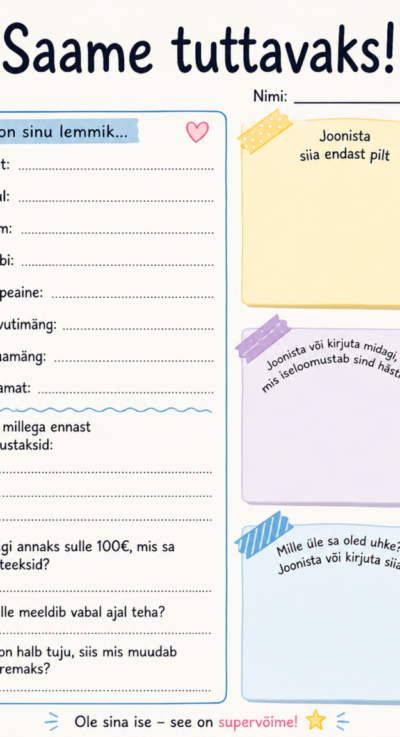 Saame tuttavaks!
Nimi:
on sinu lemmik...
t:
ul:
m:
bi:
peaine:
vutimäng:
uamäng:
amat:
millega ennast
ustaksid:
gi annaks sulle 100€, mis sa
teeksid?
lle meeldib vabal ajal teha?
on halb tuju, siis mis muudab
remaks?
Joonista
siia endast pilt
Joonista või kirjuta midagi,
mis iseloomustab sind häst
Mille üle sa oled uhke?
Joonista või kirjuta siia
Ole sina ise – see on supervõime!